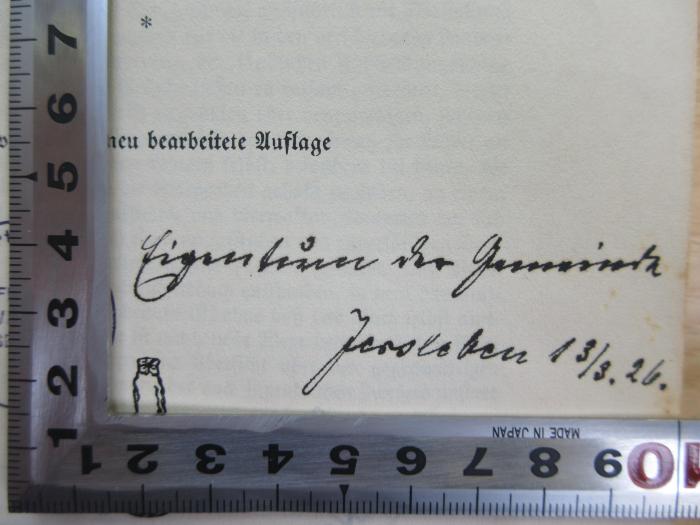 *
neu bearbeitete Auflage
Eigentum der Gemeinde
Jersleben 13/3. 26.
7
6
5
4
3
2
1
1 2 3 4 5 6 7 8 9 10
MADE IN JAPAN